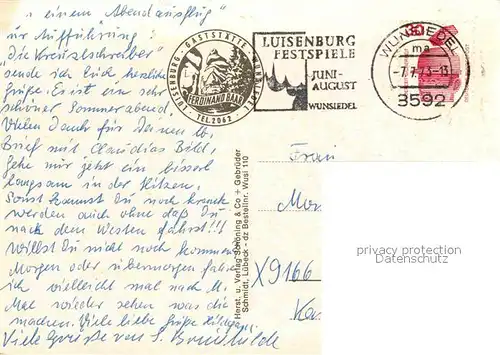 einem „Abendausflug"
zur Aufführung:
„Die Kreuzlschreiber"
sende ich Euch herzliche
Grüße. Es ist ein sehr
schöner Sommerabend.
Vielen Dank für Deinen lb.
Brief mit Claudias Bild.
Gehe nur jetzt ein bisserl
langsam in der Hitzen.
Sonst kannst Du noch krank
werden auch ohne daß Du
nach dem Westen fährst!!!
Willst Du nicht noch kommen
Morgen oder übermorgen fahre
ich vielleicht mal nach M.
Mal wieder sehen was die
machen. Viele liebe Grüße
Viele Grüße von
LUISENBURG · GASTSTÄTTE · WUNSIEDEL
FERDINAND
TEL. 2062
LUISENBURG
FESTSPIELE
JUNI-
AUGUST
WUNSIEDEL
WUNSIEDEL
ma
-7.7.75-15
8592
Herst. u. Verlag Schöning & Co + Gebrüder
Schmidt, Lübeck - dz Bestellnr. Wusi 110
Frau
Mor
X9166
privacy protection
Datenschutz